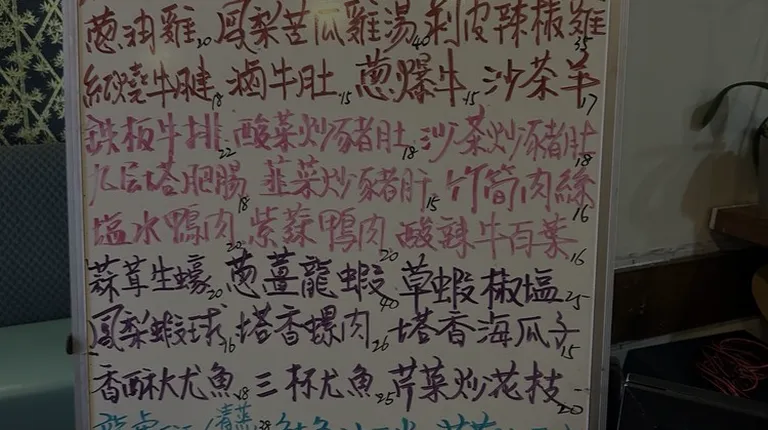 蔥油雞20 鳳梨苦瓜雞湯40 剝皮辣椒雞35
紅燒牛腱18 滷牛肚15 蔥爆牛15 沙茶羊17
鉄板牛排22 酸菜炒豬肚18 沙茶炒豬肚18
九层塔肥腸18 韮菜炒豬肝15 竹筍肉絲16
塩水鴨肉20 紫蘇鴨肉20 酸辣牛百葉16
蒜茸生蠔20 蔥薑龍蝦40 草蝦椒塩25
鳳梨蝦球16 塔香螺肉26 塔香海瓜子15
香酥大尤魚18 三杯尤魚25 芹菜炒花枝20
清蒸28